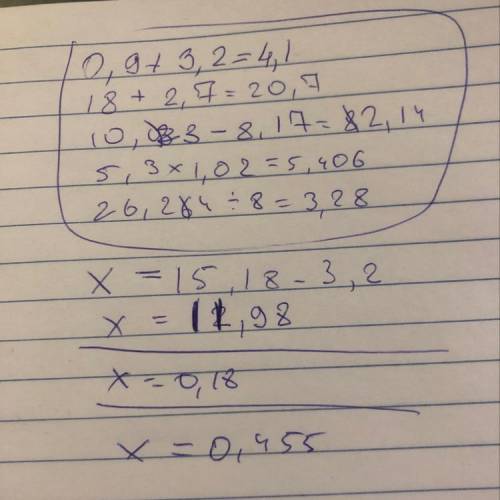 0,9+3,2=4,1
18+2,7=20,7
10,3-8,17=2,14
5,3×1,02=5,406
26,24÷8=3,28
x=15,18-3,2
x=11,98
x=0,18
x=0,455